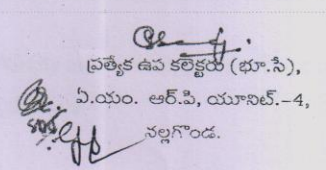 ప్రత్యేక ఉప కలెక్టరు (భూ.సే),
ఏ.యం. ఆర్.పి, యూనిట్.-4,
నల్లగొండ.